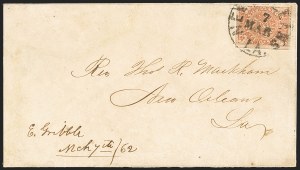 NEW
7
MAR
LA.
Rev Thos R. Markham
New Orleans
La
E. Gribble
Mch 7th/62